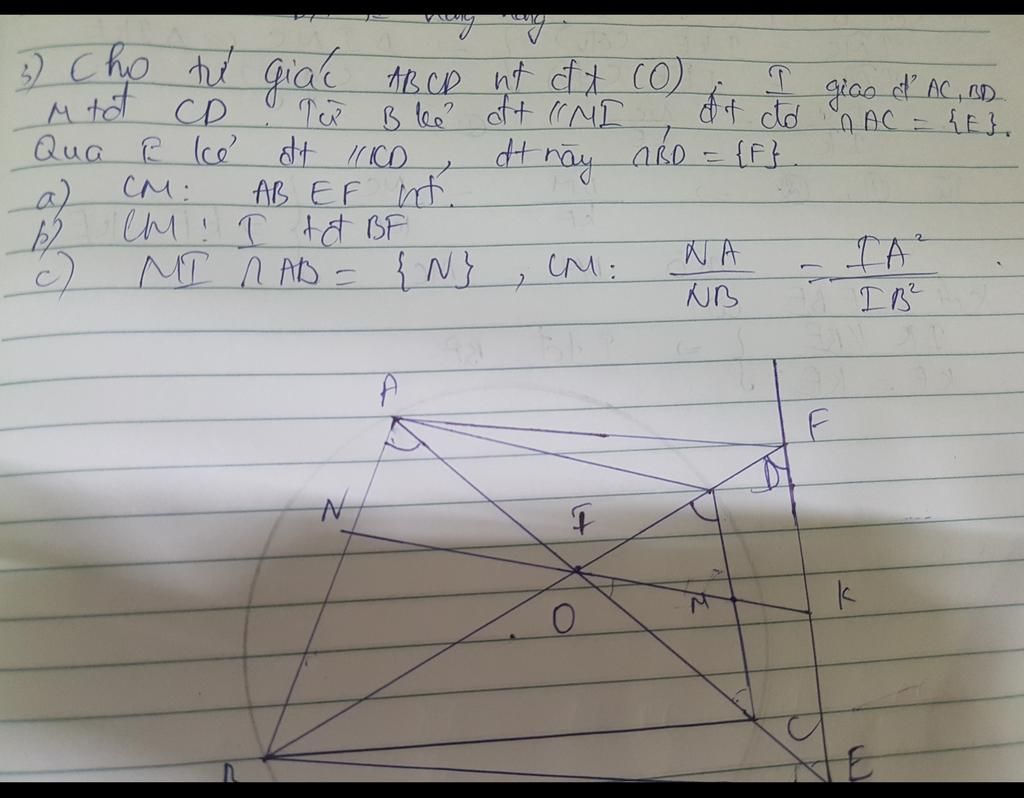 3) Cho tứ giác ABCD nt đtx (O). I giao đ' AC, BD
M tđ CD. Từ B kẻ đt // MI, đt đó ∩ AC = {E}.
Qua E kẻ đt // CD, đt này ∩ BD = {F}.
a) CM: ABEF nt.
b) CM: I tđ BF
c) MI ∩ AB = {N}, CM: NA/NB = IA²/IB².
A
F
D
N
I
M
K
O
C
B
E